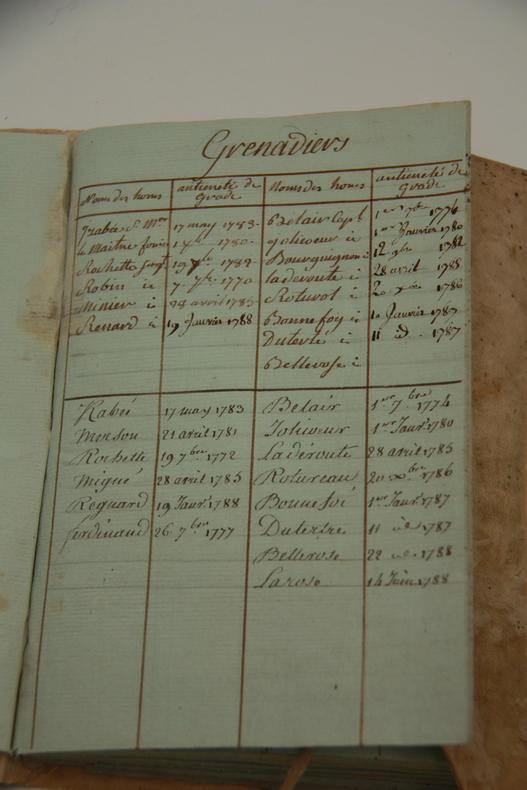 Grenadiers
Noms des homs antieneté de grade Noms des homes antieneté de grade
17 may 1783 Belair Cap.l 1er 7bre 1774
le Maitre 1780 Joliceur i 1er Janvier 1780
Rochette 19 7bre 1782 Bourguignon i 12 9bre 1782
Robin i 7 7bre 1770 laderoute i 28 avril 1785
Minier i 28 avril 1785 Roturol i 20 Xbre 1786
Renard i 19 Janvier 1788 Bonnefoy i 1er Janvier 1787
Duterté i 11 id 1787
Bellerose i
Rabeé 17 may 1783 Belair 1er 7bre 1774
Merson 21 avril 1781 Joliceur 1er Janr 1780
Rochette 19 7bre 1772 La déroute 28 avril 1785
Migué 28 avril 1785 Rotureau 20 Xbre 1786
Regnard 19 Janr 1788 Bonnefoi 1er Janr 1787
ferdinand 26 7bre 1777 Dutertre 11 id 1787
Bellerose 22 id 1788
Larose 14 Juin 1788